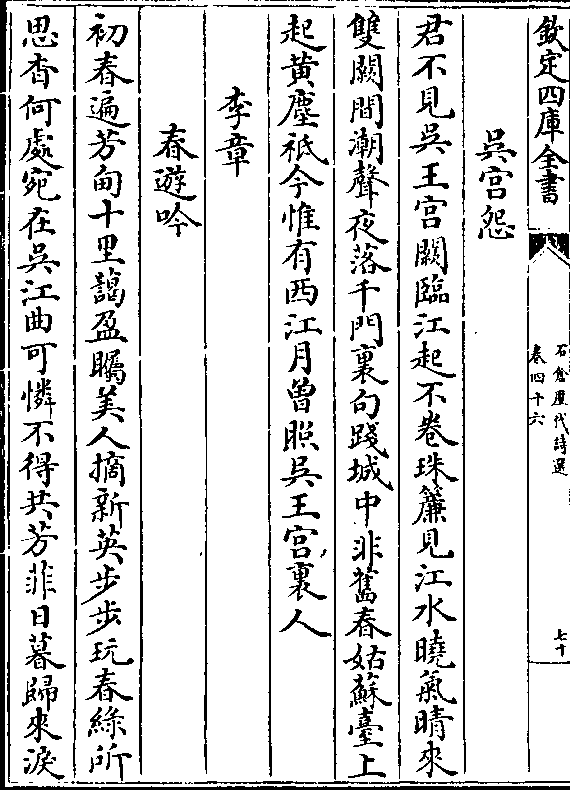 欽定四庫全書
石倉歷代詩選
卷四十六
七十
吳宮怨
君不見吳王宮闕臨江起不卷珠簾見江水曉氣晴來
雙闕間潮聲夜落千門裏句踐城中非舊春姑蘇臺上
起黃塵祗今惟有西江月曾照吳王宮裏人
李章
春遊吟
初春遍芳甸十里藹盈矚美人摘新英步步玩春綠所
思杳何處宛在吳江曲可憐不得共芳菲日暮歸來淚